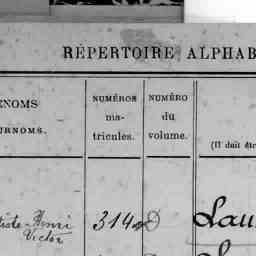 RÉPERTOIRE ALPHAB
ÉNOMS
URNOMS.
NUMÉROS
ma-
tricules.
NUMÉRO
du
volume.
(Il doit êtr
Henri
Victor
314
Lau